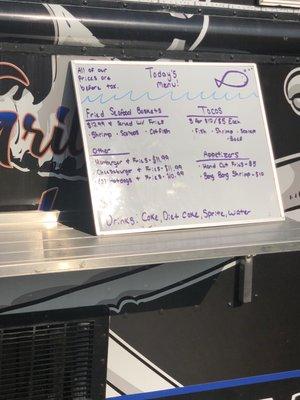 All of our
prices are
before tax.
Today's
Menu!
Fried Seafood Baskets
$12.99 + Served w/ Fries
- Shrimp - Scallops - Catfish
Tacos
3 for $12/$5 Each
- Fish - Shrimp - Scallops
- Beef
Other
- Hamburger + Fries - $11.99
- Cheeseburger + Fries - $11.99
- (2) Hotdogs + Fries - $10.99
Appetizers
- Hand Cut Fries - $5
- Bang Bang Shrimp - $10
Drinks: Coke, Diet Coke, Sprite, Water